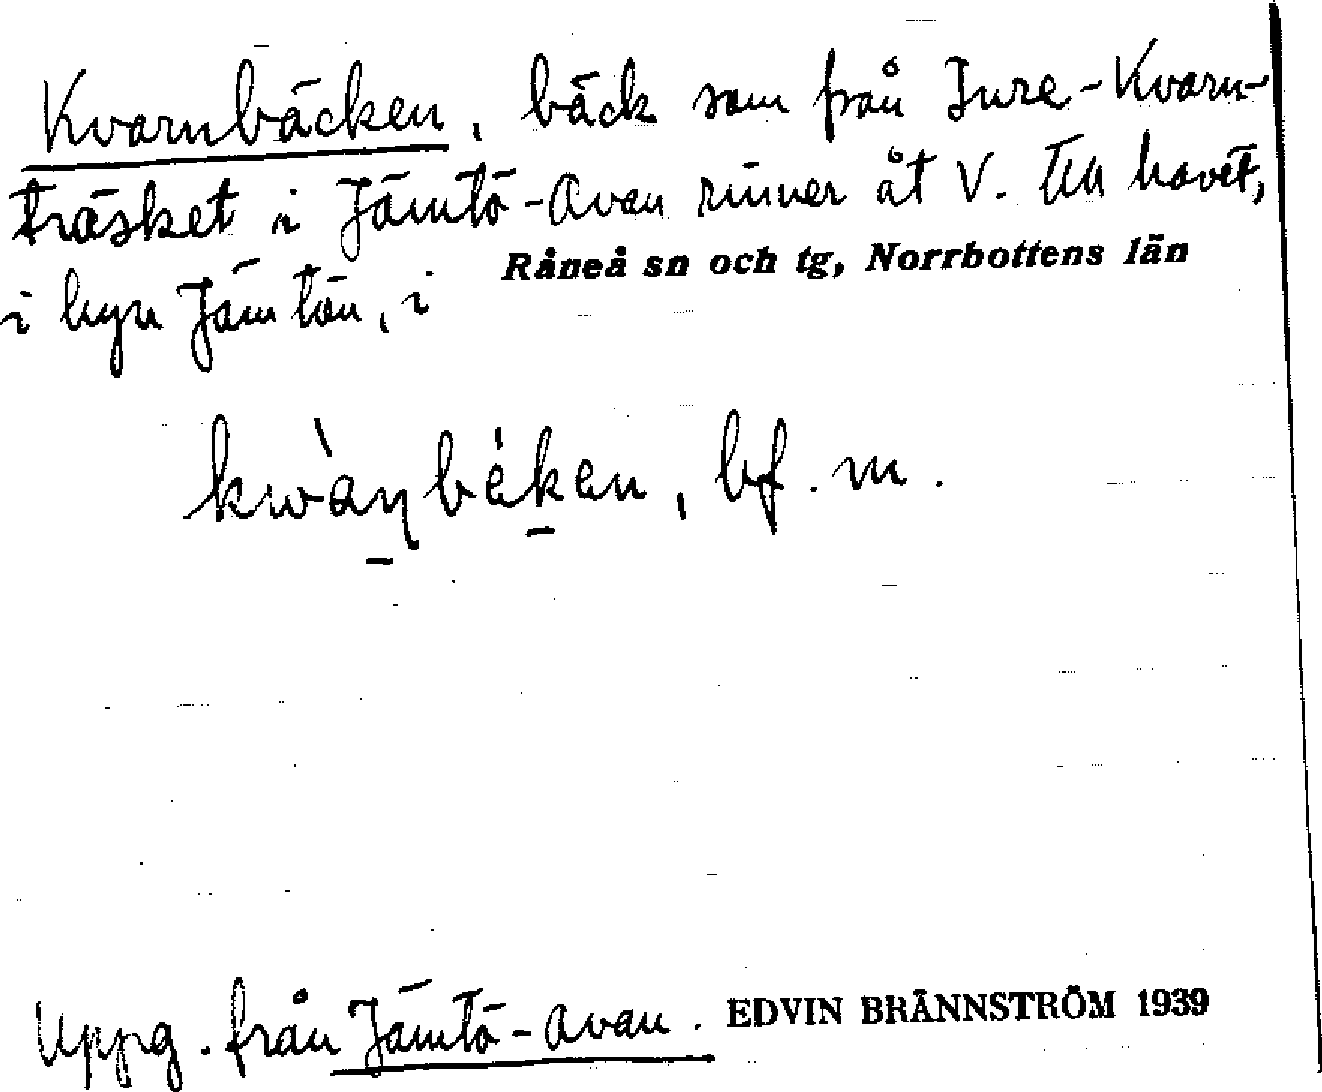 Kvarnbäcken, bäck som från Inre-Kvarn-
träsket i Jämtö-Avan rinner åt V. till havet,
i byn Jämtön, i Råneå sn och tg, Norrbottens län
kwàɳbék̲en, bf. m.
Uppg. från Jämtö-Avan. EDVIN BRÄNNSTRÖM 1939